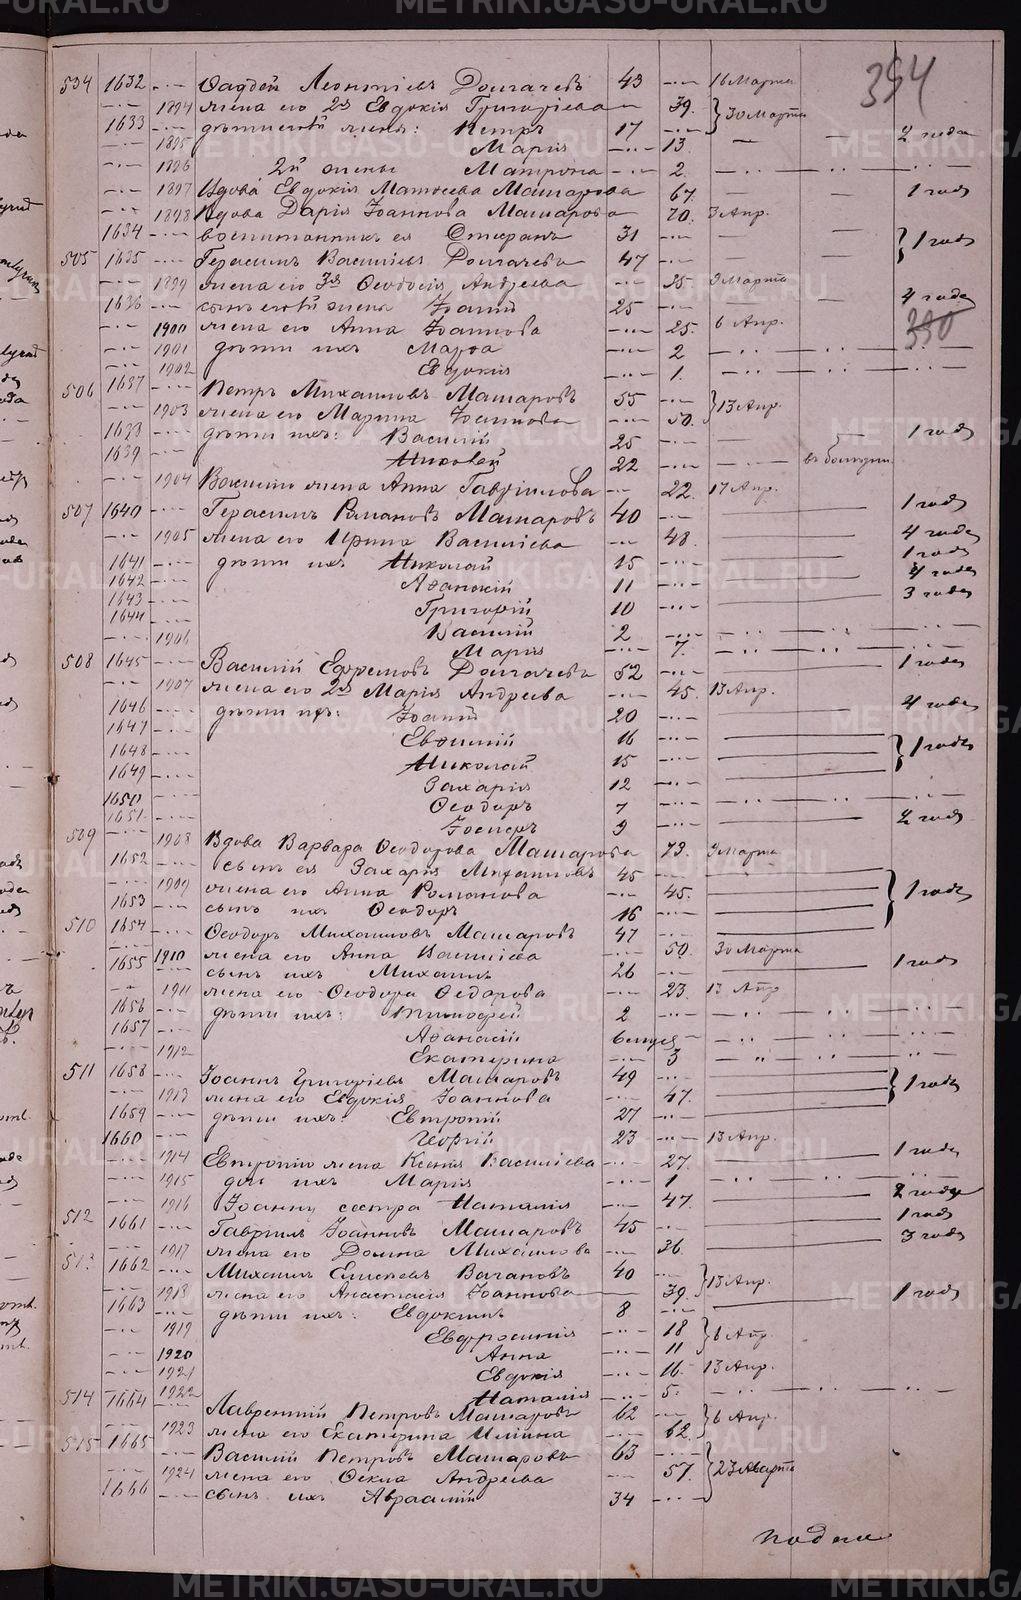 394
504 1632 -·- Фаддей Леонтіевъ Долгачевъ 43 -·- 16 Марта
-·- 1894 жена его 2я Евдокія Григоріева -·- 39. } 30 Марта
1633 -·- дѣти жены: Петръ 17 -·-
-·- 1895 Марія -·- 13. — 2 года
-·- 1896 2й жены Матрона -·- 2.
-·- 1897 Вдова Евдокія Матѳеева Машарова 67. 1 годъ
-·- 1898 Вдова Дарія Іоаннова Машарова 70. 3 Апр.
1634 -·- воспитанникъ ея Стефанъ 31 -·- } 1 годъ
505 1635 -·- Герасимъ Васильевъ Долгачевъ 47 -·-
-·- 1899 жена его 3я Ѳеодосія Андреева -·- 35. 9 Марта
1636 -·- сынъ жены Іоаннъ 25 -·- 4 года
-·- 1900 жена его Анна Іоаннова -·- 25. 6 Апр. 390
-·- 1901 дѣти ихъ Марѳа -·- 2
-·- 1902 Евдокія -·- 1.
506 1637 -·- Петръ Михаиловъ Машаровъ 55 -·- } 13 Апр.
-·- 1903 жена его Марина -·- 50.
1638 -·- дѣти ихъ: Василій 25 -·- — 1 годъ
1639 -·- Николай 22 -·-
-·- 1904 Василію жена Анна Гавріилова -·- 22. 17 Апр.
507 1640 -·- Герасимъ Романовъ Машаровъ 40 -·- 1 годъ
-·- 1905 жена его Ирина Васильева -·- 48. 4 года
1641 -·- дѣти ихъ Николай 15 -·- 1 годъ
1642 -·- Аѳанасій 11 -·- 4 года
1643 -·- Григорій 10 -·- 3 года
1644 -·- Василій 2
-·- 1906 Марія -·- 7.
508 1645 -·- Василій Ефремовъ Долгачевъ 52 -·- 1 годъ
-·- 1907 жена его 2я Марія Андреева -·- 45. 13 Апр.
1646 -·- дѣти ихъ: Іоаннъ 20 -·- 4 года
1647 -·- Евѳимій 16 -·- } 1 годъ
1648 -·- Николай 15 -·-
1649 -·- Захарія 12 -·-
1650 -·- Ѳеодоръ 7 -·-
1651 -·- 9 -·- 2 года
509 -·- 1908 Вдова Варвара Ѳеодорова Машарова 73. 9 Марта
1652 -·- сынъ ея Захарія Михаиловъ 45 -·-
-·- 1909 жена его Анна Романова 45. } 1 годъ
1653 -·- сынъ ихъ Ѳеодоръ 16 -·-
510 1654 -·- Ѳеодоръ Михаиловъ Машаровъ 47 -·-
-·- 1910 жена его Анна Васильева -·- 50. 30 Марта
1655 -·- сынъ ихъ Михаилъ 26 -·- 1 годъ
-·- 1911 жена его Ѳеодора Ѳедорова -·- 23. 13 Апр
1656 -·- дѣти ихъ: Тимоѳей 2
1657 -·- Аѳанасій
-·- 1912 Екатерина -·- 3
511 1658 -·- Іоаннъ Григоріевъ Машаровъ 49 -·- } 1 годъ
-·- 1913 жена его Евдокія Іоаннова -·- 47.
1659 -·- дѣти ихъ: Евтропій 27 -·-
1660 -·- Георгій 23 -·- 13 Апр.
-·- 1914 Евтропію жена Ксенія Васильева -·- 27. 1 годъ
-·- 1915 ихъ Марія -·- 1
-·- 1916 Іоанну сестра Наталія 47. 2 года
512 1661 -·- Гавриилъ Іоанновъ Машаровъ 45 -·- 1 годъ
-·- 1917 жена его Домна Михаилова -·- 36. 3 года
513 1662 -·- Михаилъ Вагановъ 40 -·- } 13 Апр.
-·- 1918 жена его Анастасія Іоаннова 39.
1663 -·- дѣти ихъ: Евдокимъ 8 -·- 1 годъ
-·- 1919 Евфросинія -·- 18 } 6 Апр.
-·- 1920 Анна -·- 11
-·- 1921 Евдокія -·- 16 13 Апр.
-·- 1922 Наталія -·- 5.
514 1664 -·- Лаврентій Петровъ Машаровъ 62 -·- } 6 Апр.
-·- 1923 жена его Екатерина Ильина -·- 62.
515 1665 -·- Василій Петровъ Машаровъ 63 -·- } 23 Марта
-·- 1924 жена его Ѳекла Андреева -·- 57.
1666 -·- сынъ ихъ Авраамій 34 -·-
METRIKI.GASO-URAL.RU